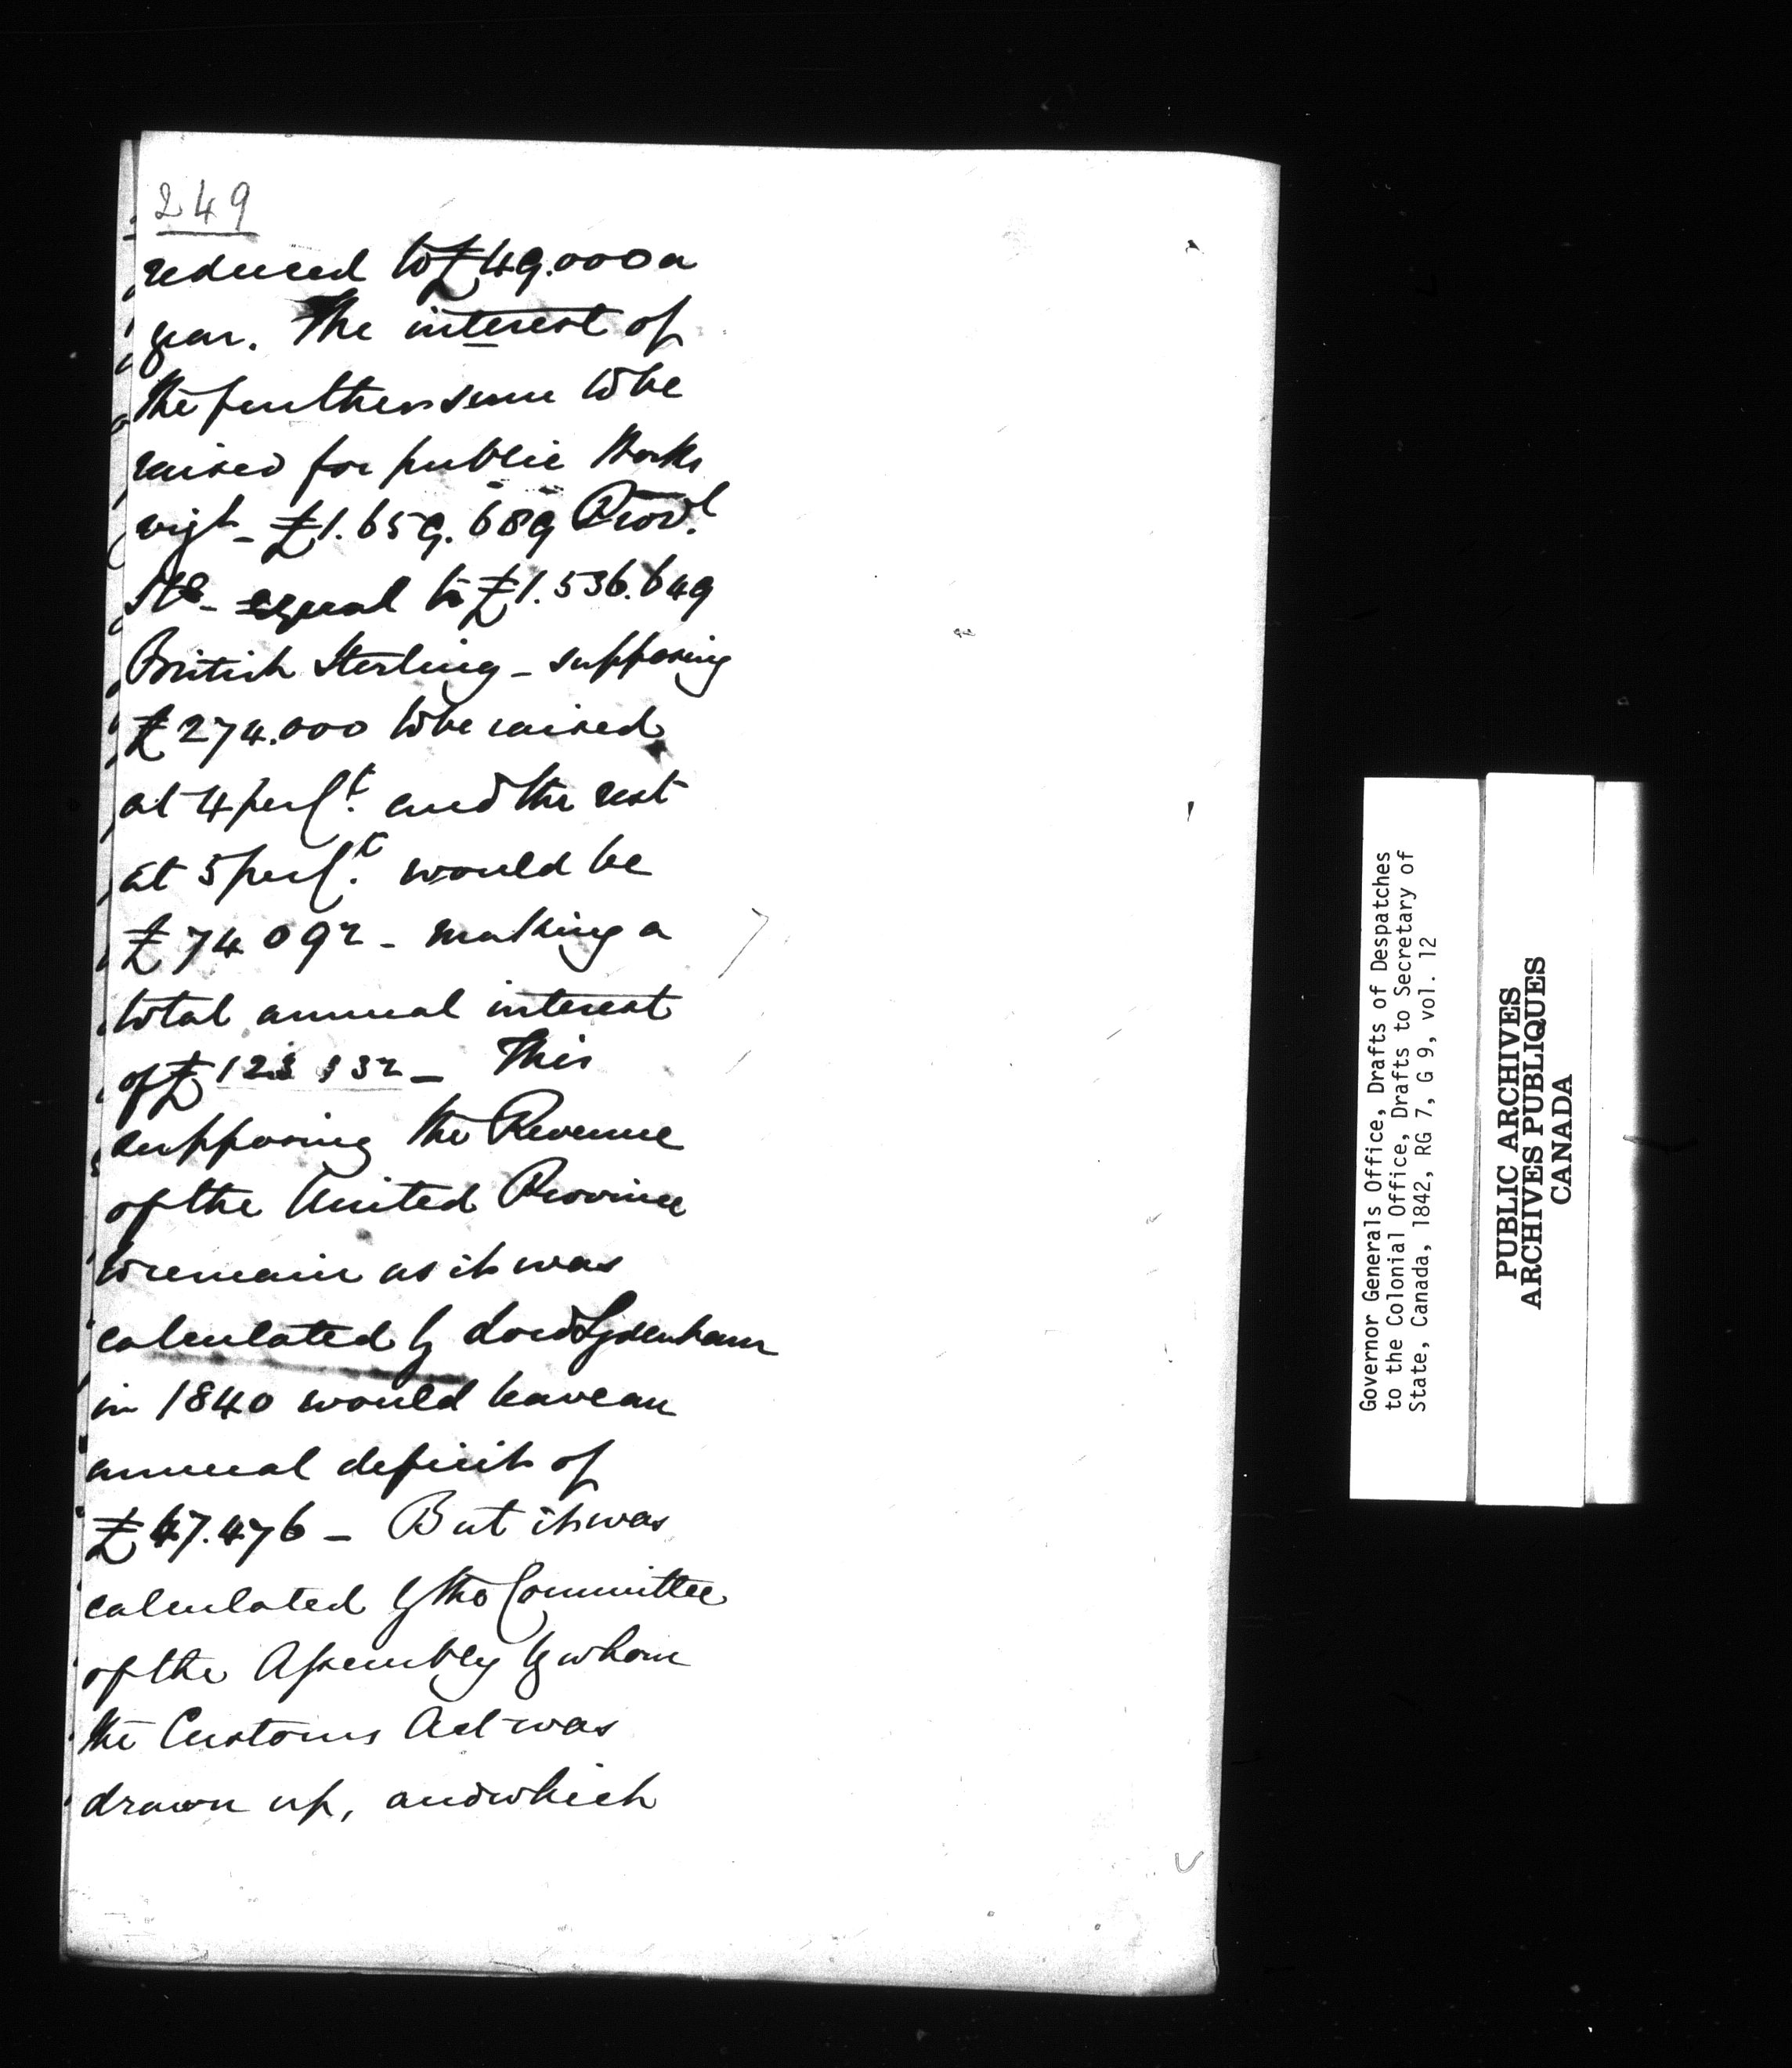 249
reduced to £49.000 a
year. The interest of
the further sum to be
raised for public Works
vizt - £1.659.689 Provl.
Stg - equal to £1.536.649
British Sterling - supposing
£274.000 to be raised
at 4 per Ct. and the rest
at 5 per Ct. would be
£74092 - making a
total annual interest
of £ 123 132 - This
supposing the Revenue
of the United Province
to remain as it was
calculated by Lord Sydenham
in 1840 would leave an
annual deficit of
£47.476 - But it was
calculated by the Committee
of the Assembly by whom
the Customs Act was
drawn up, and which
Governor Generals Office, Drafts of Despatches
to the Colonial Office, Drafts to Secretary of
State, Canada, 1842, RG 7, G 9, vol. 12
PUBLIC ARCHIVES
ARCHIVES PUBLIQUES
CANADA